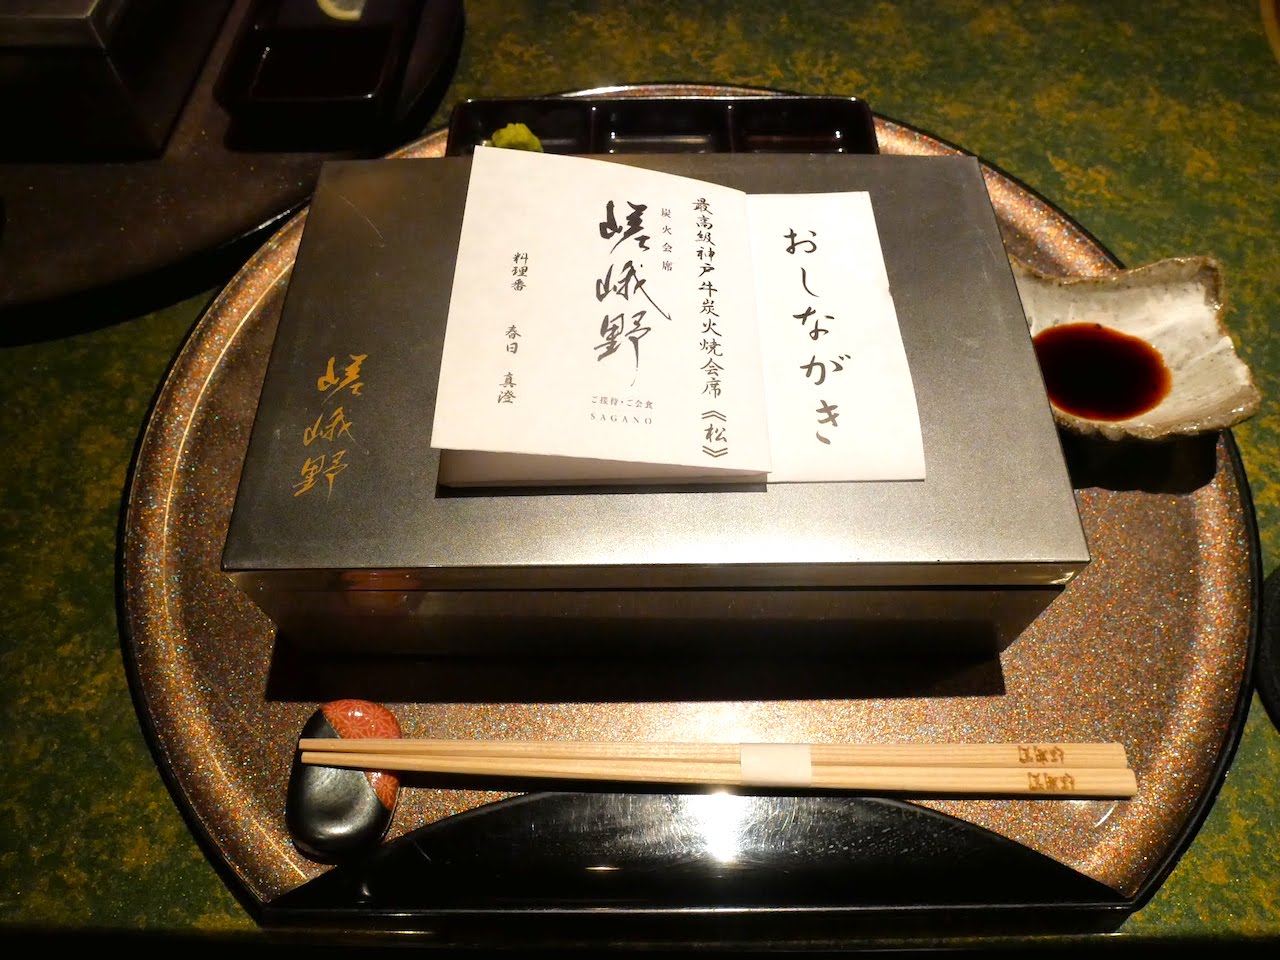 おしながき
最高級神戸牛炭火焼会席《松》
炭火会席
嵯峨野
ご接待・ご会食
SAGANO
料理番 春日 真澄
嵯峨野